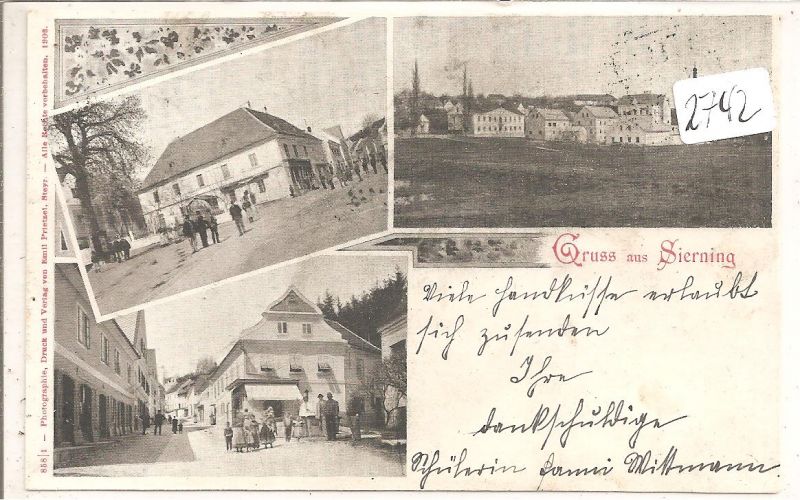 858|1 — Photographie, Druck und Verlag von Emil Prietzel, Steyr. — Alle Rechte vorbehalten. 1903.
2742
Gruss aus Sierning
Viele Handküsse erlaubt
sich zusenden
Ihre
dankschuldige
Schülerin Fanni Wittmann